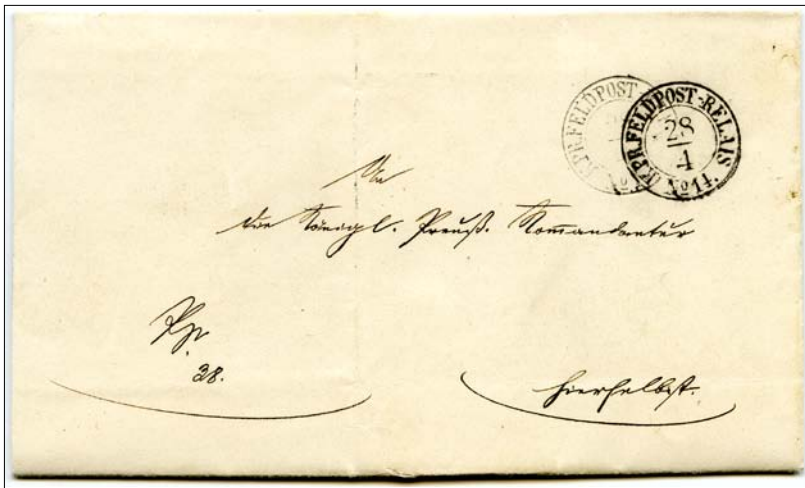 K.PR.FELDPOST-
K.PR.FELDPOST-RELAIS
28
4
No 14.
An
die Königl. Preuß. Kommandantur
38.
hierselbst.